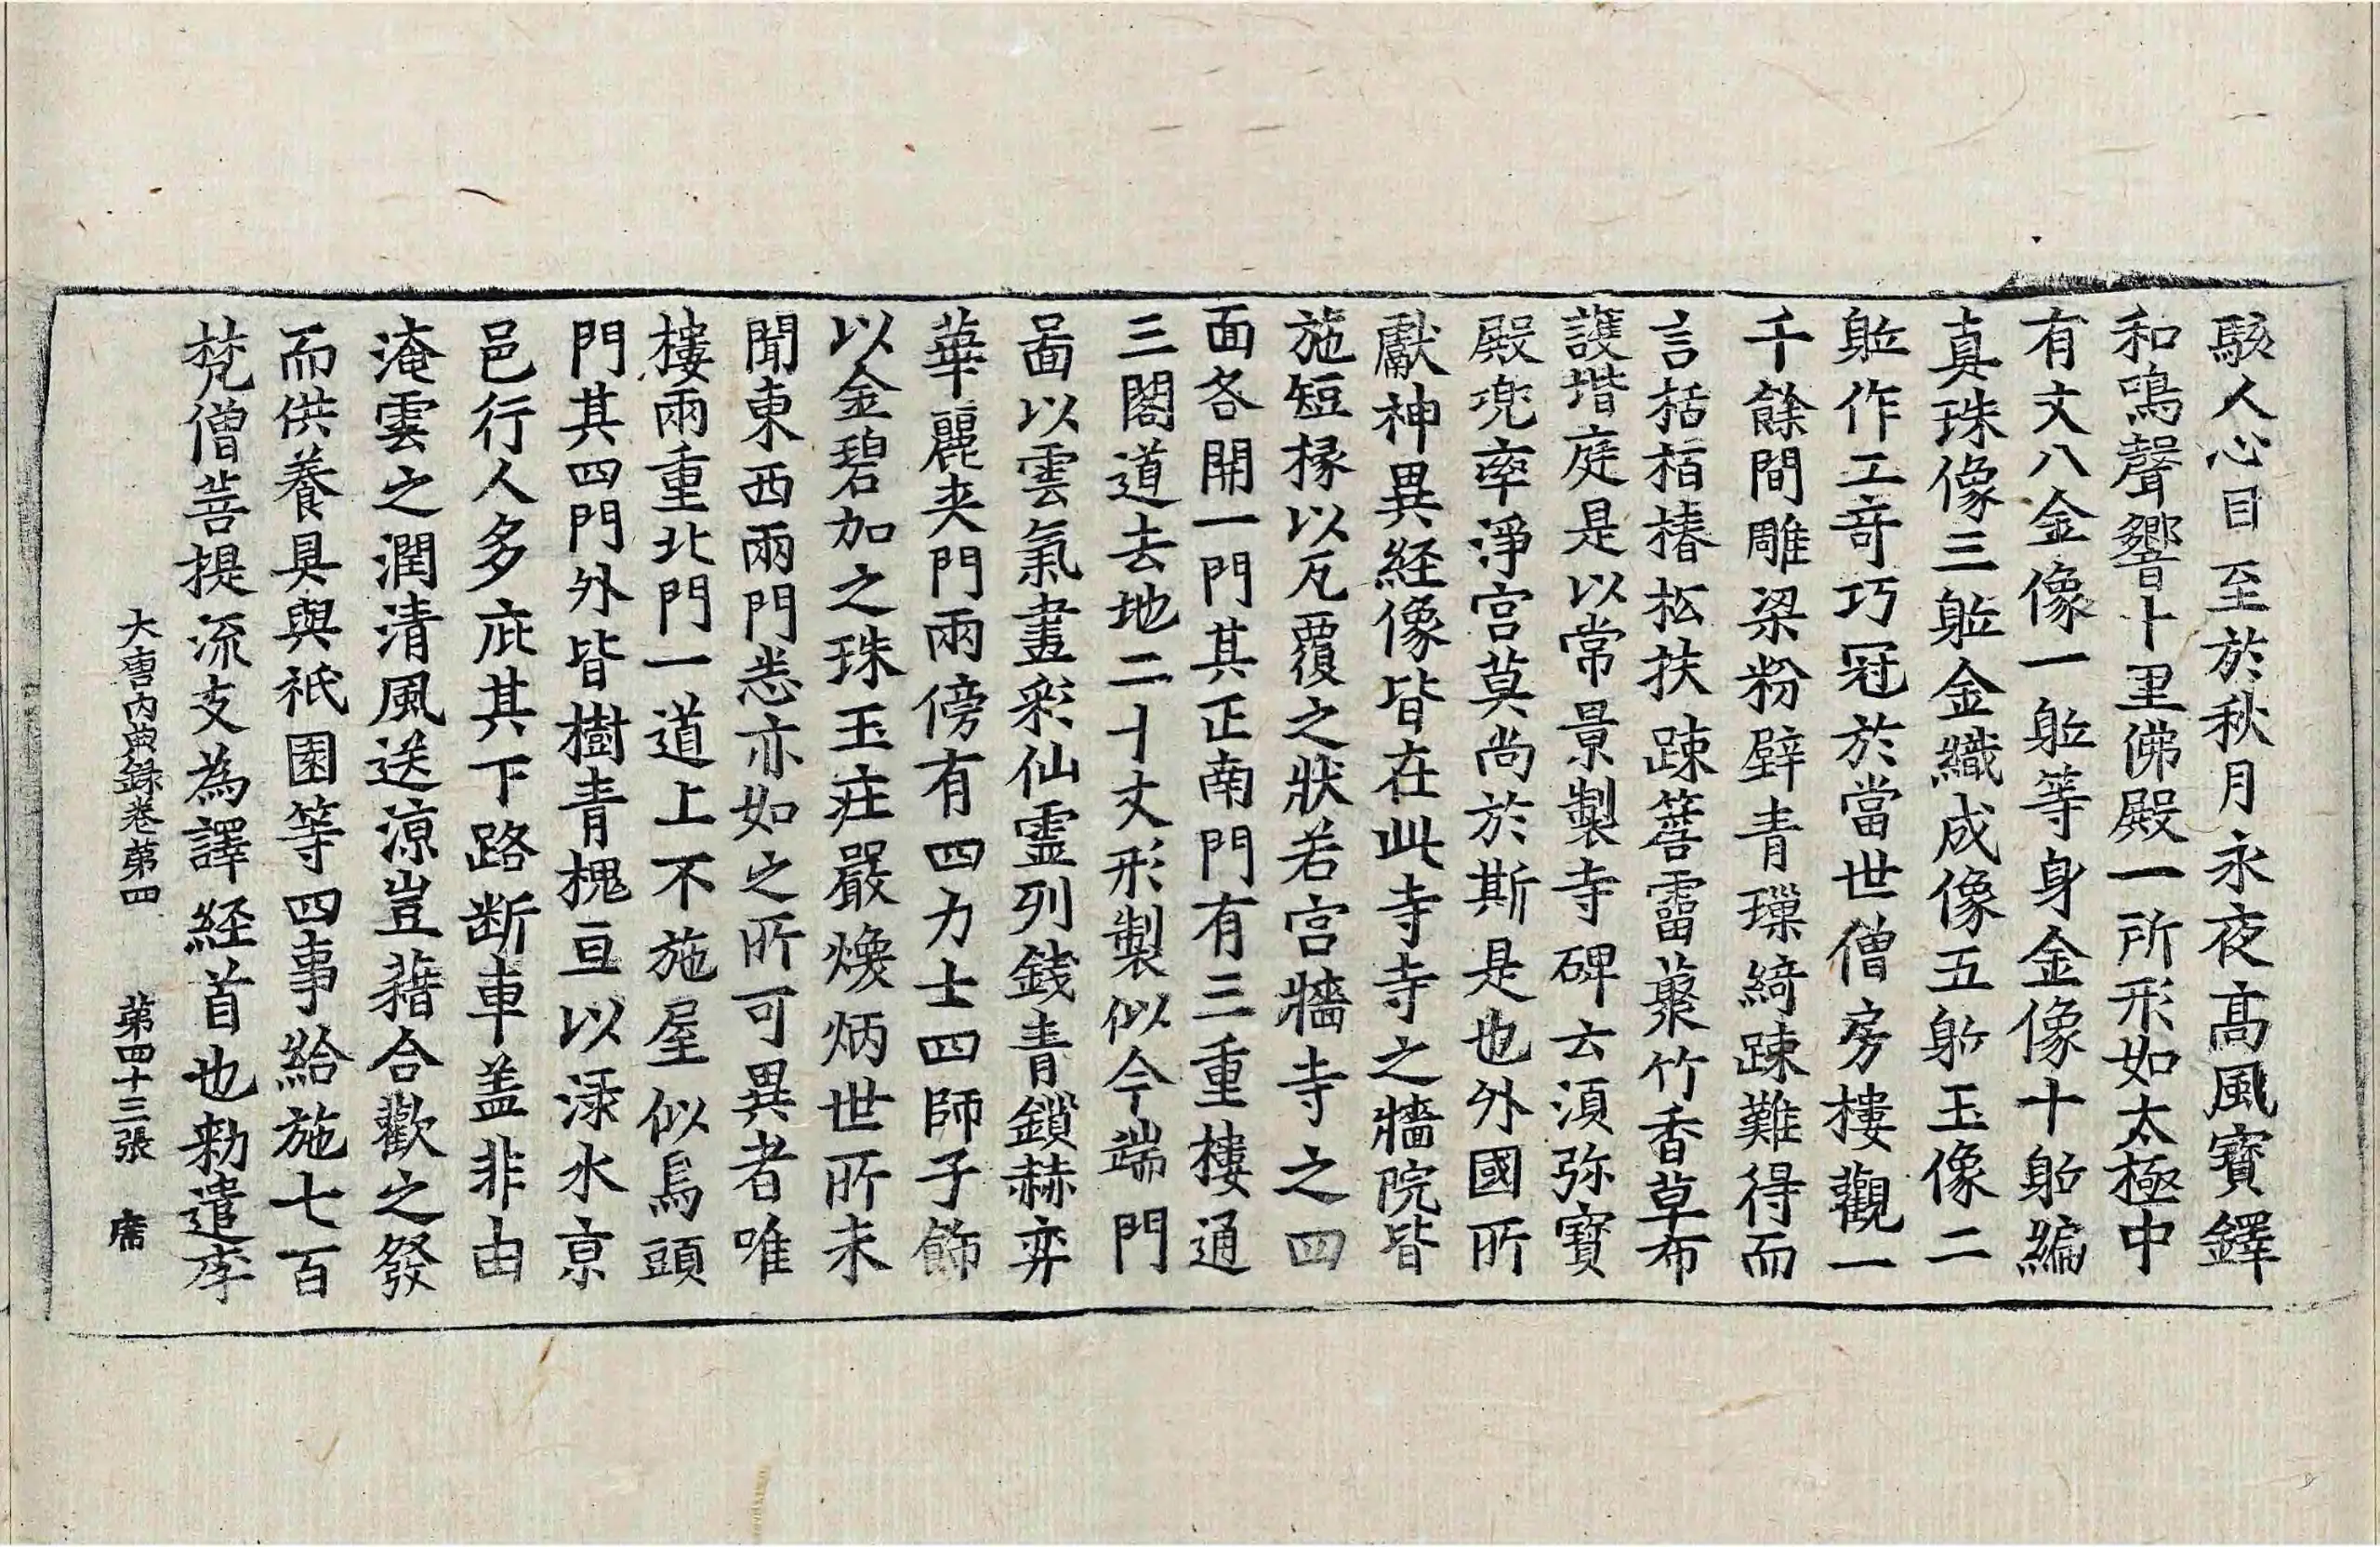 駭人心目至於秋月永夜高風寶鐸
和鳴聲響十里佛殿一所形如太極中
有丈八金像一軀等身金像十躯編
真珠像三軀金織成像五躯玉像二
軀作工竒巧冠於當世僧房樓觀一
千餘間雕梁粉壁青璅綺踈難得而
言栝栢椿松扶踈簷霤藂竹香草布
護堦庭是以常景製寺碑云湏弥寶
殿兜率淨宫莫尚於斯是也外國所
獻神異経像皆在此寺寺之牆院皆
施短椽以瓦覆之狀若宫牆寺之四
面各開一門其正南門有三重樓通
三閣道去地二十丈形製似今端門
啚以雲氣畫彩仙霊列錢青鎖赫弈
華麗夹門兩傍有四力士四師子餙
以金碧加之珠玉莊嚴煥炳世所未
聞東西兩門悉亦如之所可異者唯
樓兩重北門一道上不施屋似烏頭
門其四門外皆樹青槐亘以渌水京
邑行人多庇其下路断車盖非由
淹雲之潤清風送涼豈藉合歡之發
而供養具與祇園等四事給施七百
梵僧菩提流支為譯経首也勑遣李
大唐内典録卷苐四　苐四十三張　席